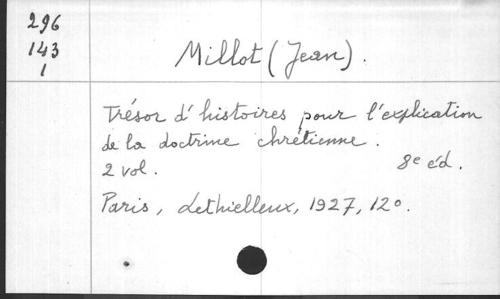 296
143
1
Millot (Jean).
Trésor d'histoires pour l'explication
de la doctrine chrétienne.
2 vol. 8e éd.
Paris, Lethielleux, 1927, 12o.